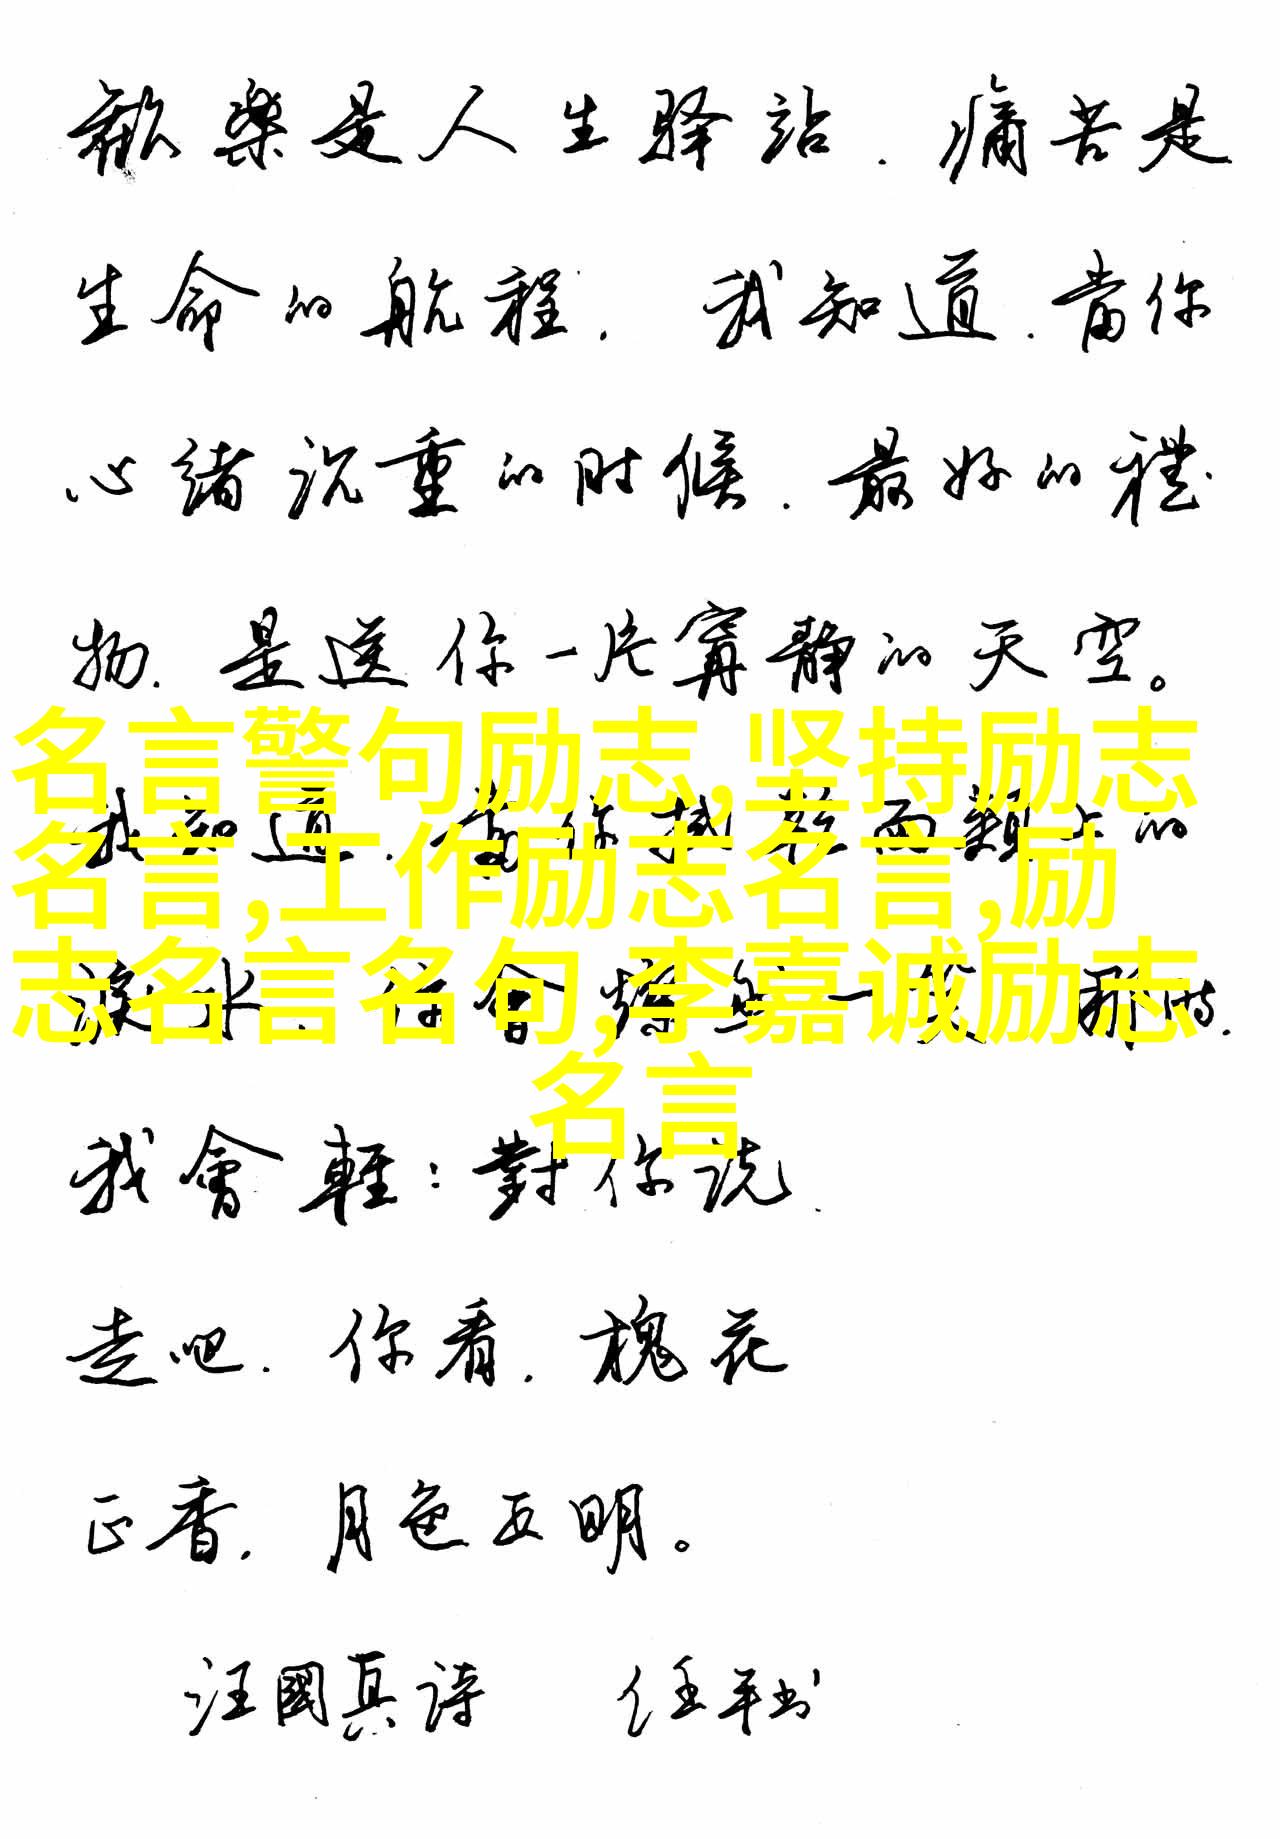 歡樂是人生驿站.痛苦是
生命的航程.我知道.當你
心緒沉重的时候.最好的禮
物.是送你一片寧静的天空。
名言警句励志,坚持励志
我知道.當你拭 面 上的
名言,工作励志名言,励
志名言名句,李嘉诚励志
淚水.你會 然一笑 那时.
名言
我會輕:對你说.
走吧.你看.槐花
正香.月色正明。
汪國真诗 任平书